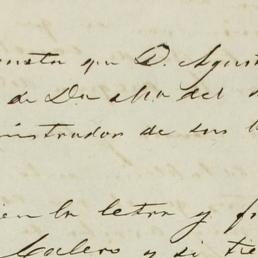 que D. Agust
de Da. del
nistrador de sus
en la letra y
Calero y si tie